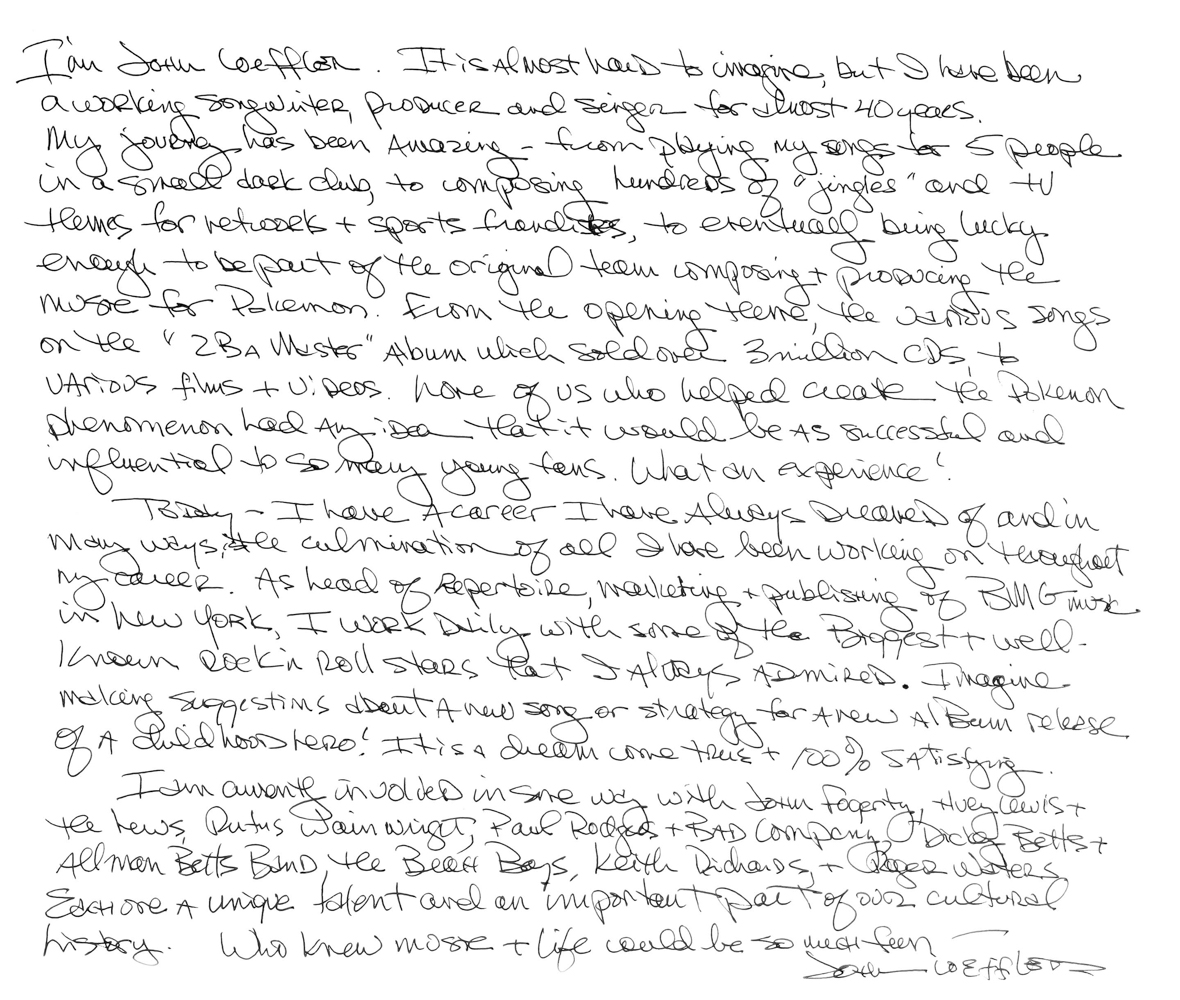 I'm John Loeffler. It is Almost hard to imagine, but I have been
a working songwriter, producer and singer for almost 40 years.
My journey has been Amazing - from playing my songs to 5 people
in a small dark club, to composing hundreds of "jingles" and TV
themes for networks + sports franchises, to eventually being lucky
enough to be part of the original team composing + producing the
music for Pokemon. From the opening theme, the various songs
on the "2BA Master" Album which sold over 3 million CDs, to
various films + videos. None of us who helped create the Pokemon
phenomenon had any idea that it would be as successful and
influential to so many young fans. What an experience!
Today - I have A career I have Always Dreamed of and in
many ways, the culmination of all I have been working on throughout
my career. As head of Repertoire, marketing + publishing of BMG music
in New York, I work Daily with some of the Biggest + well-
known Rock'n Roll stars that I Always ADMIRED. Imagine
making suggestions about A new song or strategy for A new Album release
of A childhood hero! It is a dream come true + 100% satisfying.
I am currently involved in some way with John Fogerty, Huey Lewis +
the News, Rufus Wainwright, Paul Rodgers + BAD Company, Dickey Betts +
Allman Betts Band, the Beach Boys, Keith Richards, + Roger Waters
Each one A unique talent and an important part of our cultural
history. Who knew music + life could be so much fun
John Loeffler